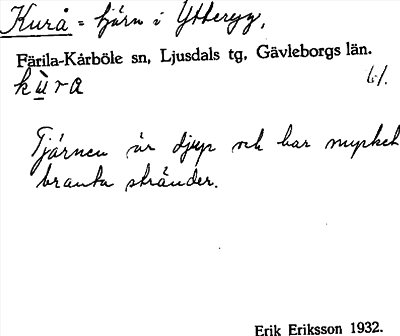 Kurå = tjärn i Ytterg,
Färila-Kårböle sn, Ljusdals tg, Gävleborgs län.
kùra bf.
Tjärnen är djup och har mycket
branta stränder.
Erik Eriksson 1932.